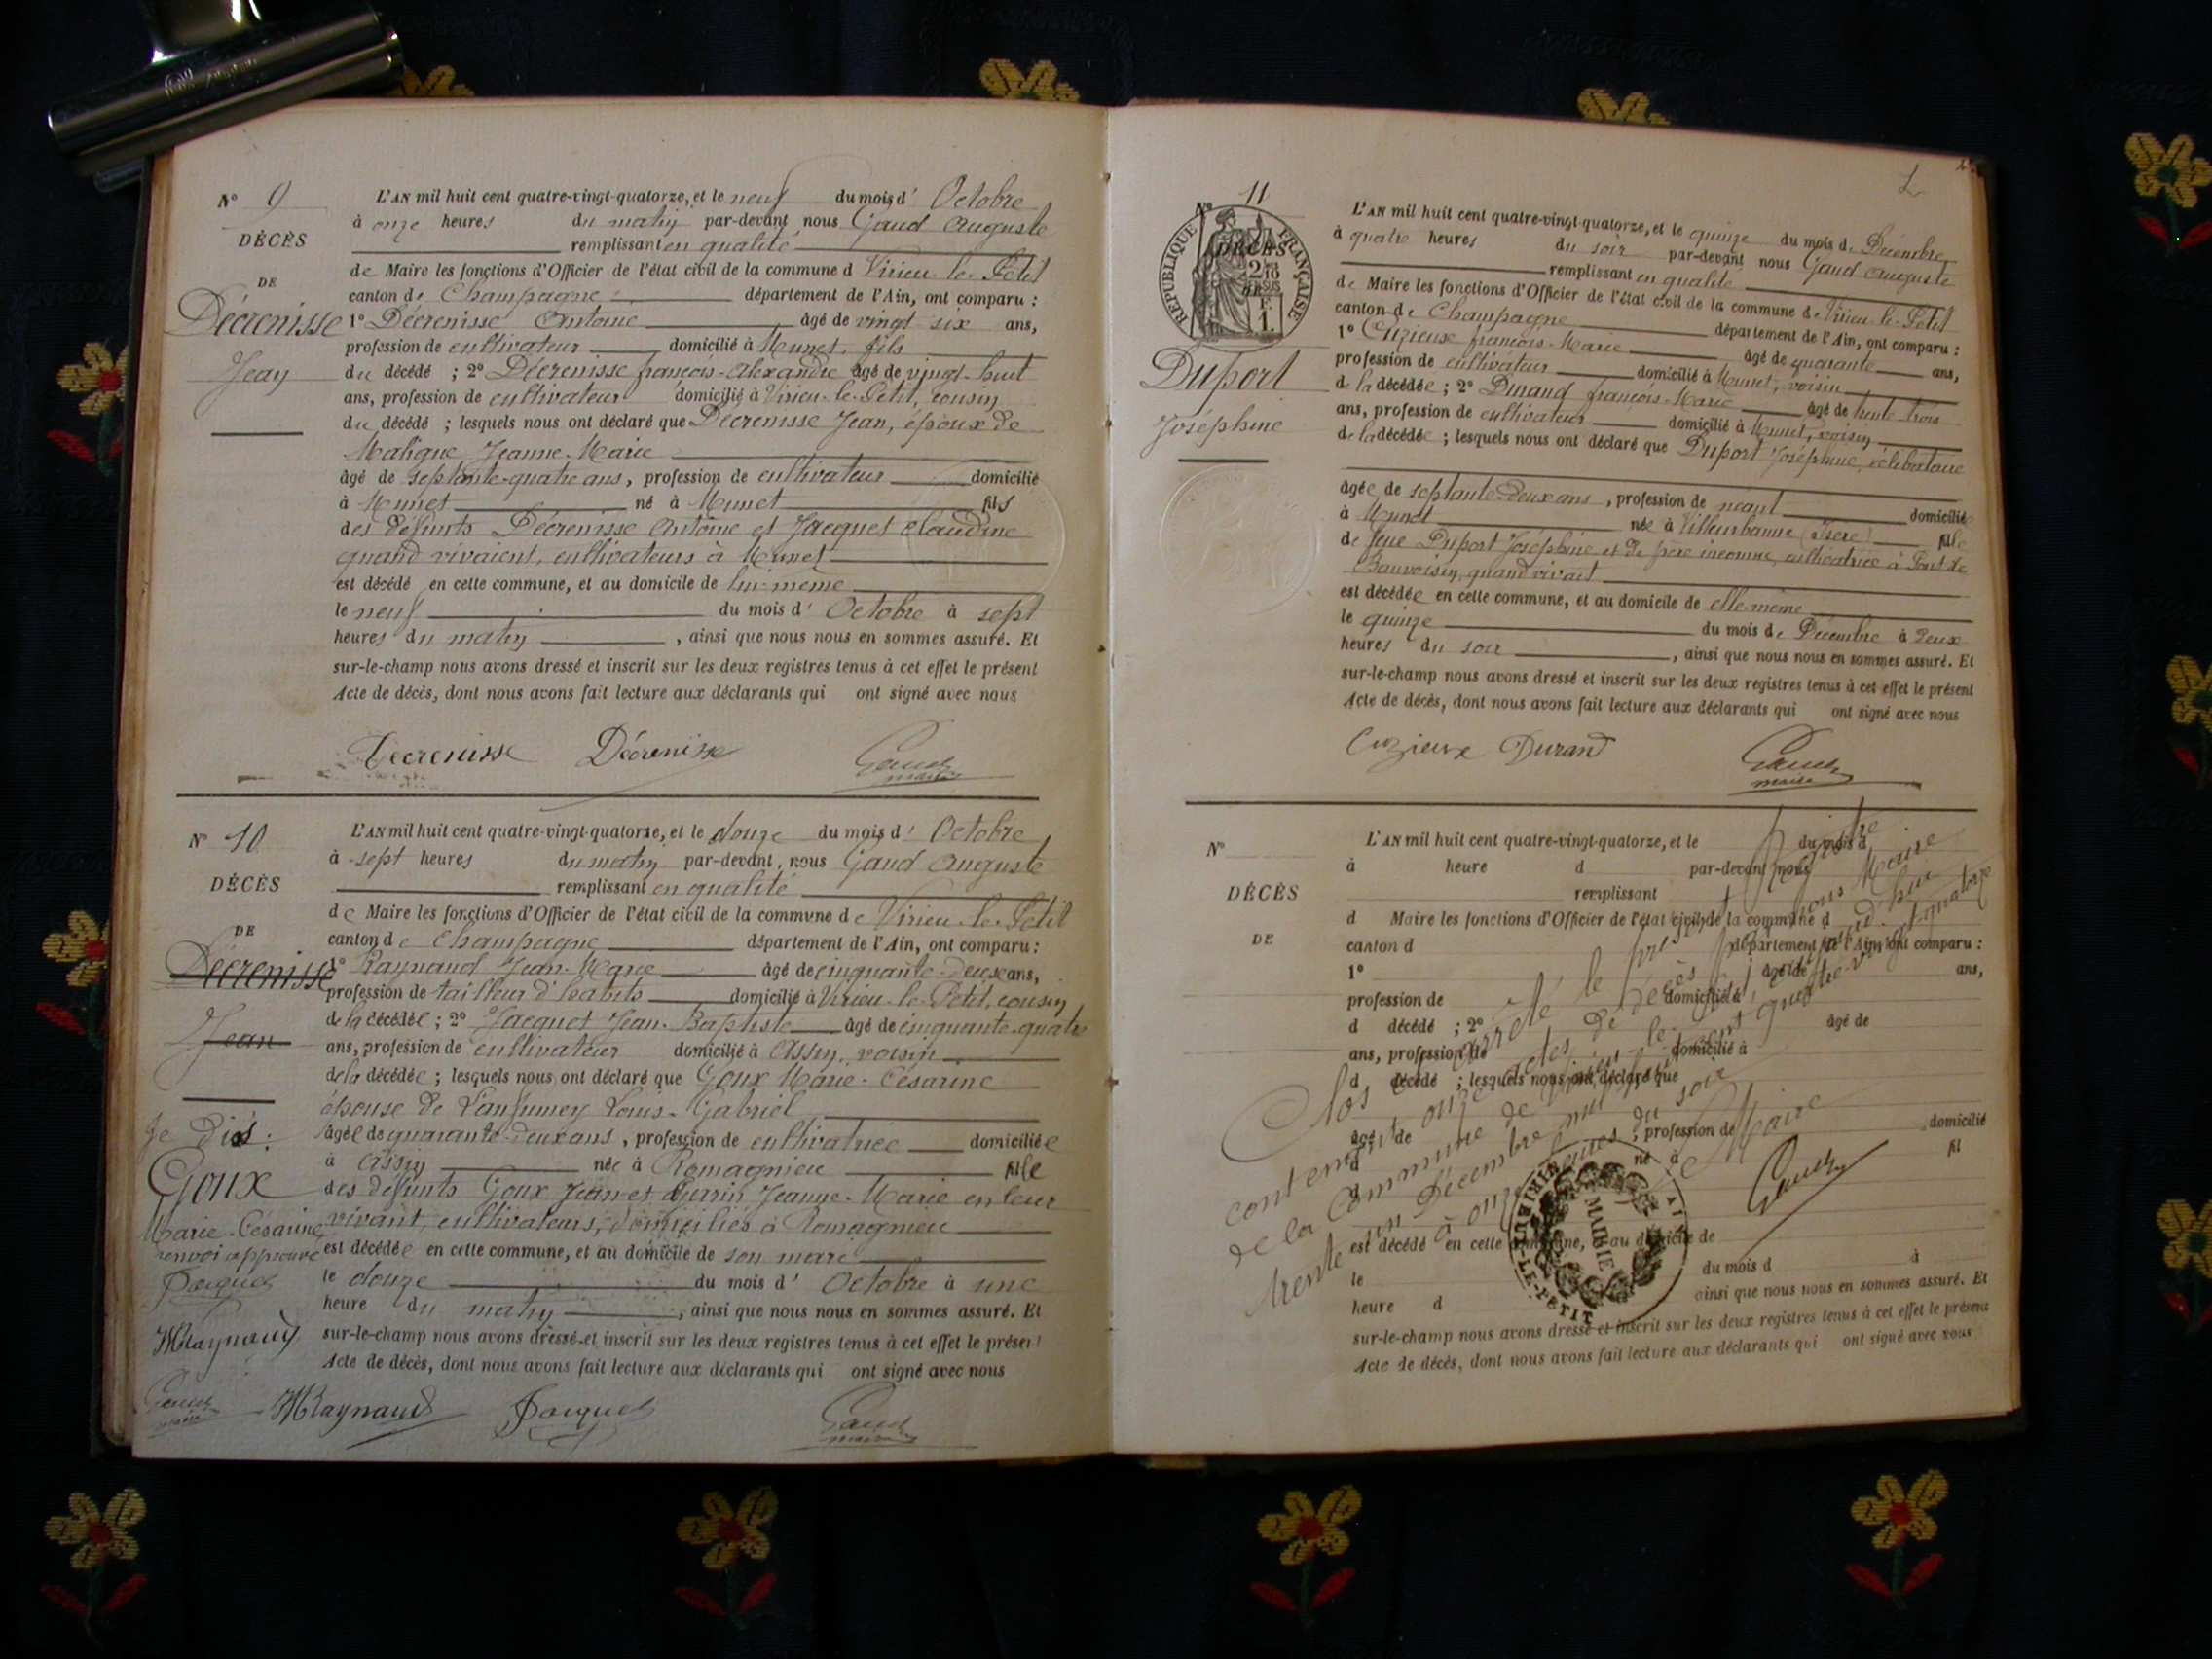 N° 9
DÉCÈS
DE
Décrenisse
Jean
L'AN mil huit cent quatre-vingt-quatorze, et le neuf du mois d' Octobre
à onze heures du matin par-devant nous Gaud Auguste
remplissant en qualité
de Maire les fonctions d'Officier de l'état civil de la commune d Virieu-le-Petit
canton de Champagne département de l'Ain, ont comparu :
1° Décrenisse Antoine âgé de vingt six ans,
profession de cultivateur domicilié à Munet, fils
du décédé ; 2° Décrenisse françois-Alexandre âgé de vingt-huit
ans, profession de cultivateur domicilié à Virieu-le-Petit, cousin
du décédé ; lesquels nous ont déclaré que Décrenisse Jean, époux de
Jeanne-Marie
âgé de septante-quatre ans, profession de cultivateur domicilié
à Munet né à Munet fils
des défunts Décrenisse Antoine et Jacquet Claudine
quand vivaient, cultivateurs à Munet
est décédé en cette commune, et au domicile de lui-même
le neuf du mois d' Octobre à sept
heures du matin , ainsi que nous nous en sommes assuré. Et
sur-le-champ nous avons dressé et inscrit sur les deux registres tenus à cet effet le présent
Acte de décès, dont nous avons fait lecture aux déclarants qui ont signé avec nous
Decrenisse Décrenisse Gaud
maire
N° 10
DÉCÈS
DE
Décrenisse
Jean
Je dis :
Goux
Marie-Césarine
renvoi approuvé
Jacquet
JMRaynaud
Gaud
maire
L'AN mil huit cent quatre-vingt-quatorze, et le douze du mois d' Octobre
à sept heures du matin par-devant, nous Gaud Auguste
remplissant en qualité
de Maire les fonctions d'Officier de l'état civil de la commune de Virieu-le-Petit
canton de Champagne département de l'Ain, ont comparu :
1° Raynaud Jean-Marie âgé de cinquante-deux ans,
profession de tailleur d'habits domicilié à Virieu-le-Petit, cousin
de la décédée ; 2° Jacquet Jean-Baptiste âgé de cinquante-quatre
ans, profession de cultivateur domicilié à Assin, voisin
de la décédée ; lesquels nous ont déclaré que Goux Marie-Césarine
épouse de Louis-Gabriel
âgée de quarante-deux ans, profession de cultivatrice domiciliée
à Assin née à Romagnieu fille
des défunts Goux Jean et Jeanne-Marie en leur
vivant, cultivateurs, domiciliés à Romagnieu
est décédée en cette commune, et au domicile de son mari
le douze du mois d' Octobre à une
heure du matin , ainsi que nous nous en sommes assuré. Et
sur-le-champ nous avons dressé et inscrit sur les deux registres tenus à cet effet le présent
Acte de décès, dont nous avons fait lecture aux déclarants qui ont signé avec nous
JMRaynaud Jacquet Gaud
maire
N° 11
RÉPUBLIQUE FRANÇAISE
DÉCÈS
Duport
Joséphine
L'AN mil huit cent quatre-vingt-quatorze, et le quinze du mois de Décembre
à quatre heures du soir par-devant nous Gaud Auguste
remplissant en qualité
de Maire les fonctions d'Officier de l'état civil de la commune de Virieu-le-Petit
canton de Champagne département de l'Ain, ont comparu :
1° Cuzieux françois-Marie âgé de quarante ans,
profession de cultivateur domicilié à Munet, voisin
de la décédée ; 2° Durand françois-Marie âgé de trente-trois
ans, profession de cultivateur domicilié à Munet, voisin
de la décédée ; lesquels nous ont déclaré que Duport Joséphine, célibataire
âgée de septante-deux ans, profession de néant domicilié
à Munet née à Villeurbanne (Isère) fille
de feue Duport Joséphine et de père inconnu, cultivatrice à Pont de
Bauvoisin, quand vivait
est décédée en cette commune, et au domicile de elle-même
le quinze du mois de Décembre à deux
heures du soir , ainsi que nous nous en sommes assuré. Et
sur-le-champ nous avons dressé et inscrit sur les deux registres tenus à cet effet le présent
Acte de décès, dont nous avons fait lecture aux déclarants qui ont signé avec nous
Cuzieux Durand Gaud
maire
N°
DÉCÈS
DE
L'AN mil huit cent quatre-vingt-quatorze, et le du mois d
à heure d par-devant nous
remplissant
d Maire les fonctions d'Officier de l'état civil de la commune d
canton d département de l'Ain, ont comparu :
1° âgé de ans,
profession de domicilié à
d décédé ; 2° âgé de
ans, profession de domicilié à
d décédé ; lesquels nous ont déclaré que
âgé de , profession de domicilié
à né à fil
est décédé en cette commune, et au domicile de
le du mois d à
heure d ainsi que nous nous en sommes assuré. Et
sur-le-champ nous avons dressé et inscrit sur les deux registres tenus à cet effet le présent
Acte de décès, dont nous avons fait lecture aux déclarants qui ont signé avec nous
Clos et arrêté le présent Registre
contenant onze actes de décès par nous Maire
de la Commune de Virieu-le-Petit, aujourd'hui
trente un Décembre mil huit cent quatre-vingt-quatorze
à onze heures du soir
Le Maire
Gaud
MAIRIE
VIRIEU-LE-PETIT